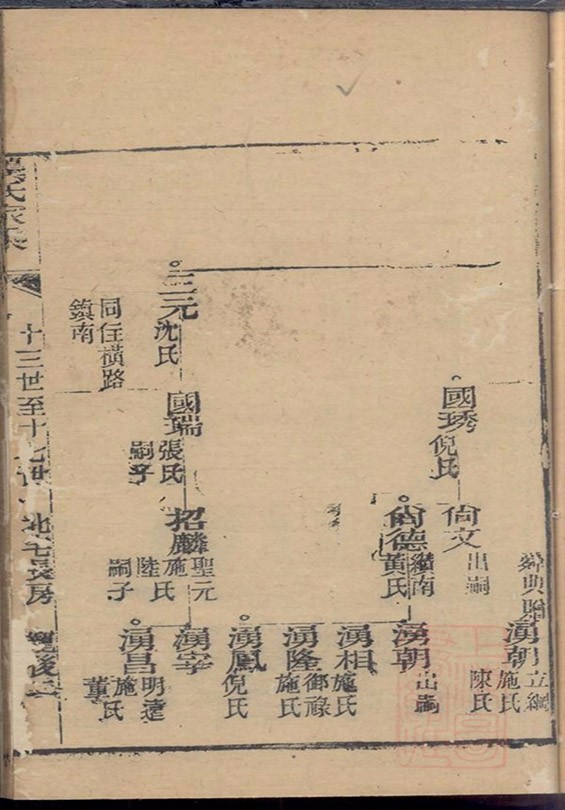 國琇
倪氏
尙文
出嗣
湧朝
立綱
施氏
陳氏
尙德
繼南
黃氏
湧朝
出嗣
湧相
施氏
湧隆
御祿
施氏
湧鳳
倪氏
三元
沈氏
同住橫路
鎮南
國瑞
張氏
嗣子
招麟
聖元
施氏
陸氏
嗣子
湧寧
湧昌
明達
施氏
董氏
氏家乘
十三世至十七世
七長房